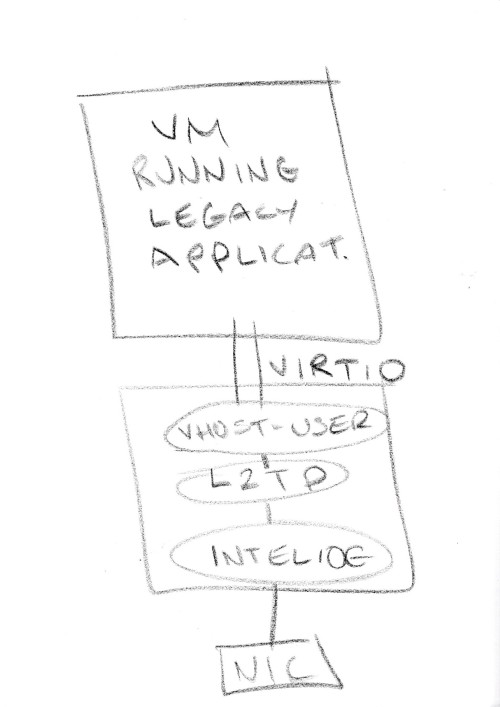 VM
RUNNING
LEGACY
APPLICAT.
VIRTIO
VHOST-USER
L2TP
INTEL10G
NIC